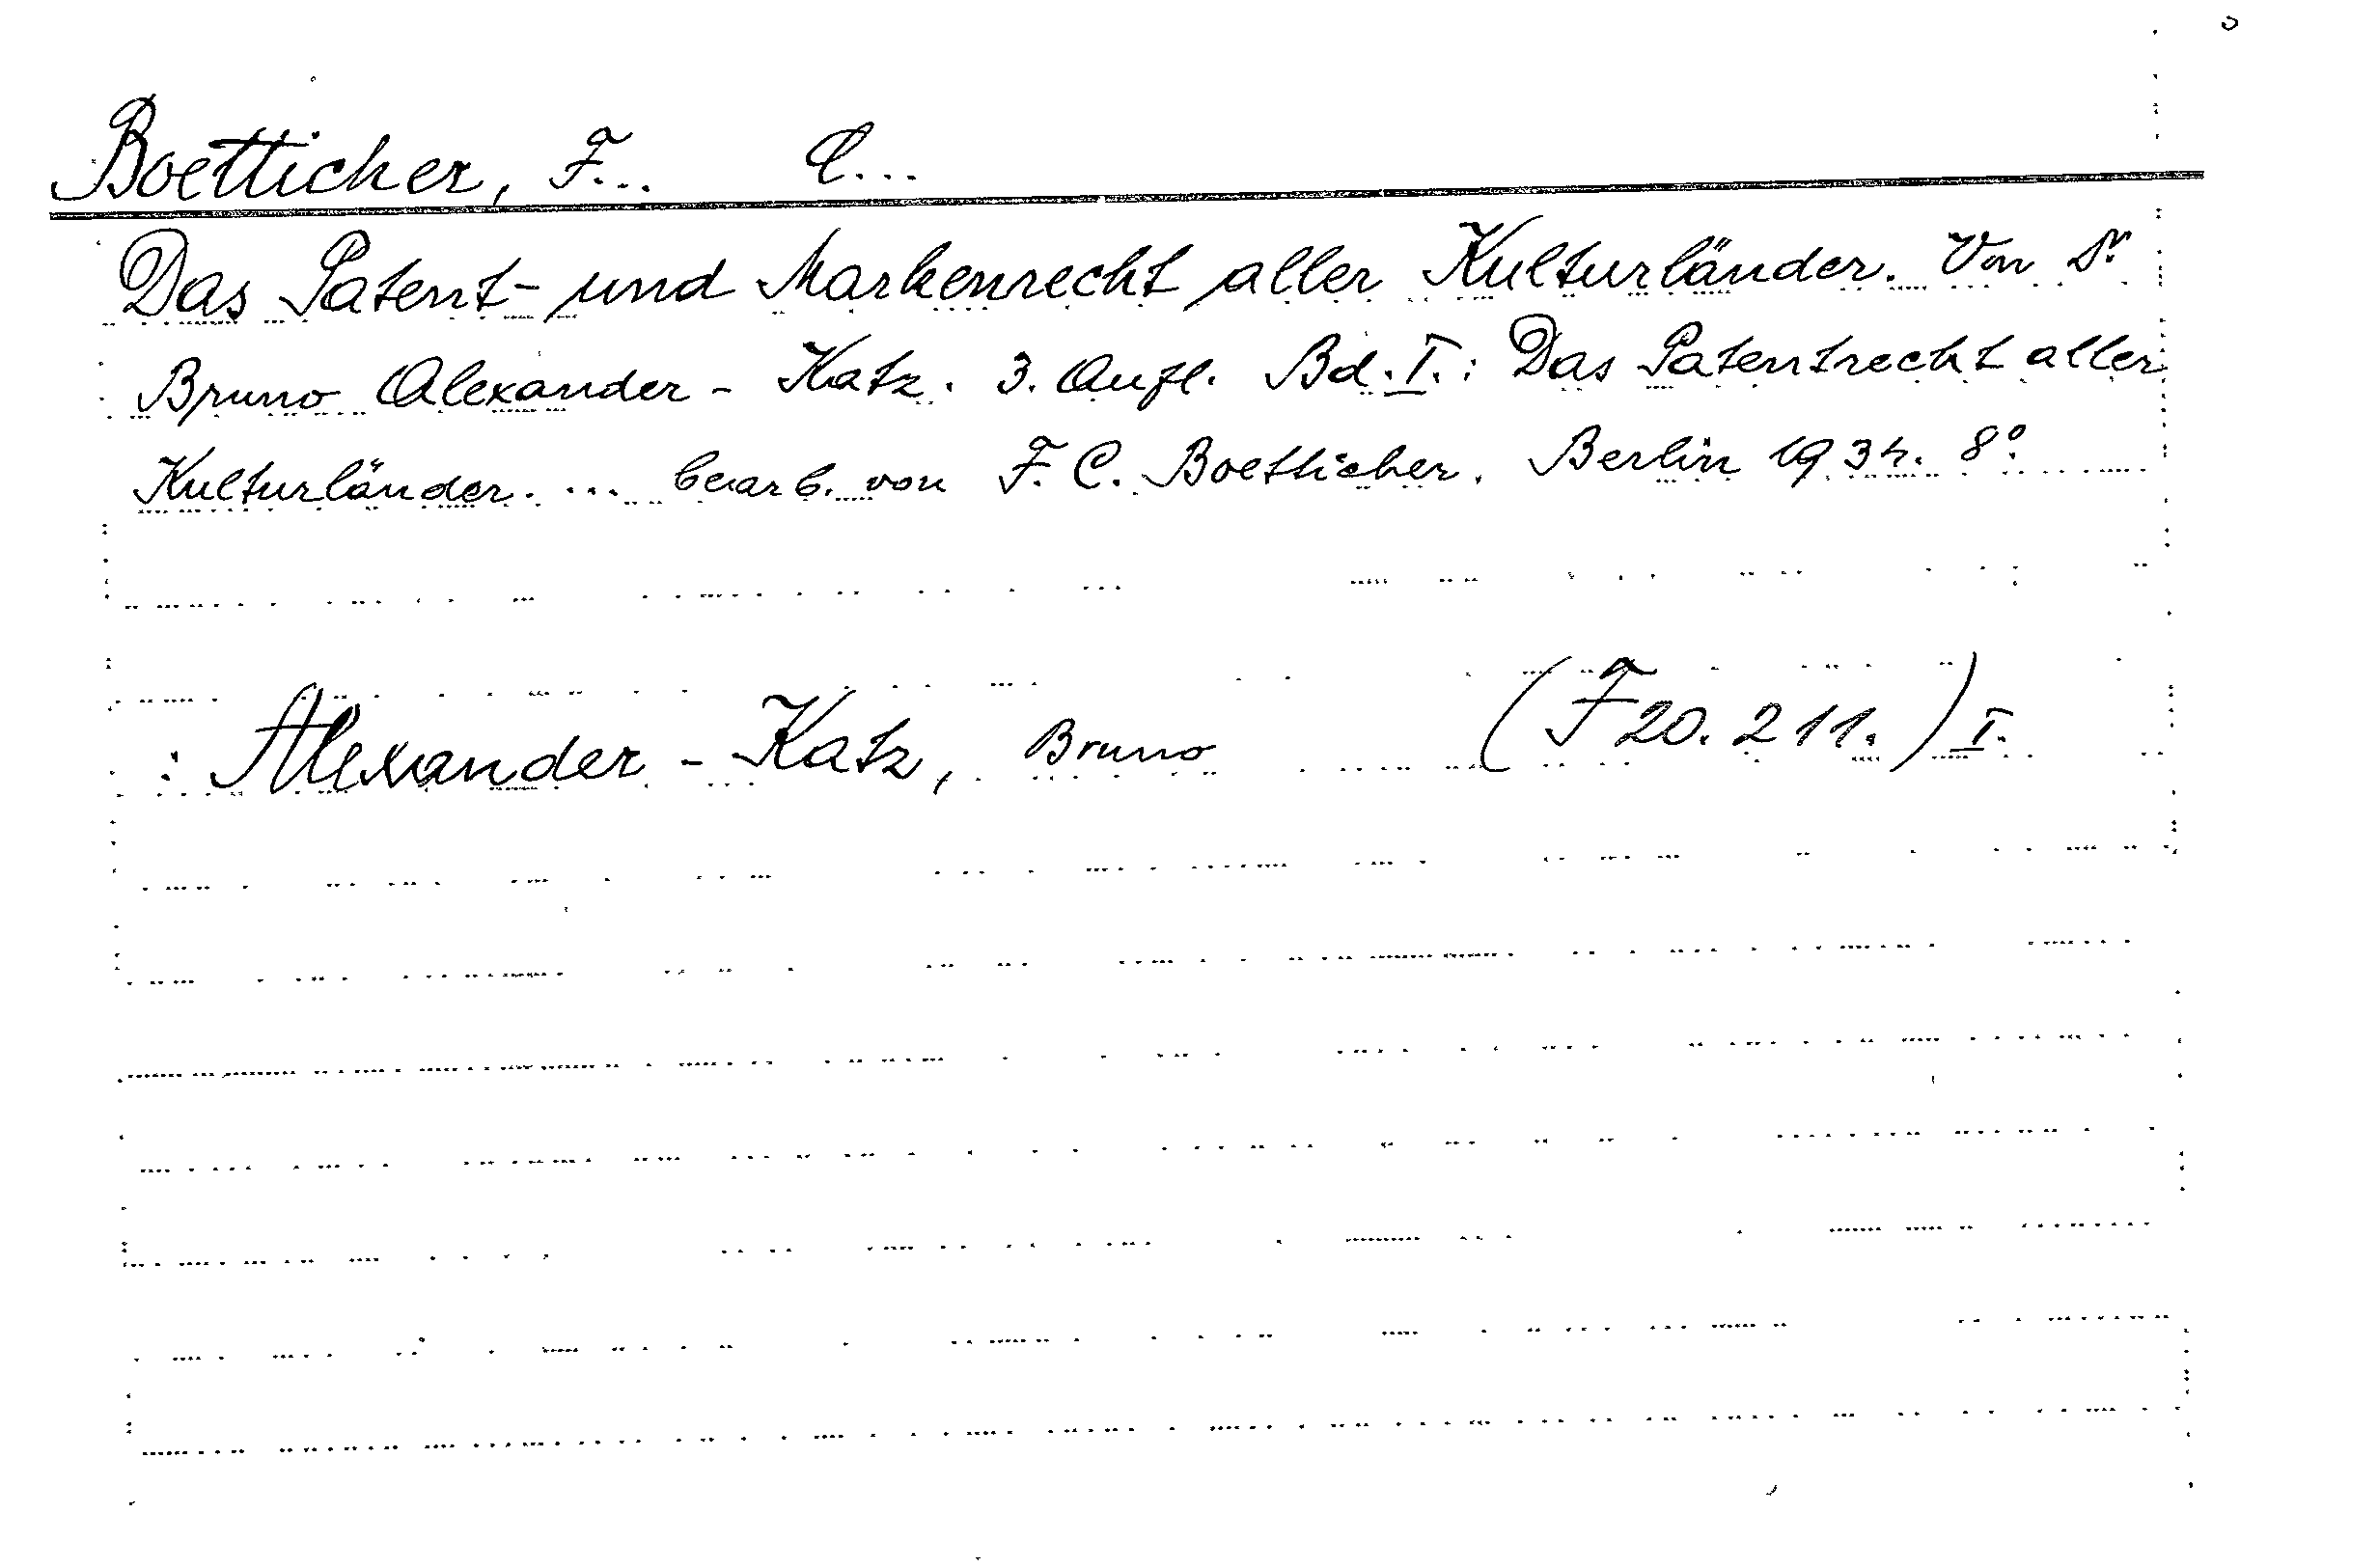 Boetticher, F... C...
Das Patent- und Markenrecht aller Kulturländer. Von Dr.
Bruno Alexander-Katz. 3. Aufl. Bd. I.: Das Patentrecht aller
Kulturländer. ... bearb. von F. C. Boetticher. Berlin 1934. 8°.
: Alexander-Katz, Bruno (F 20. 211.) I.